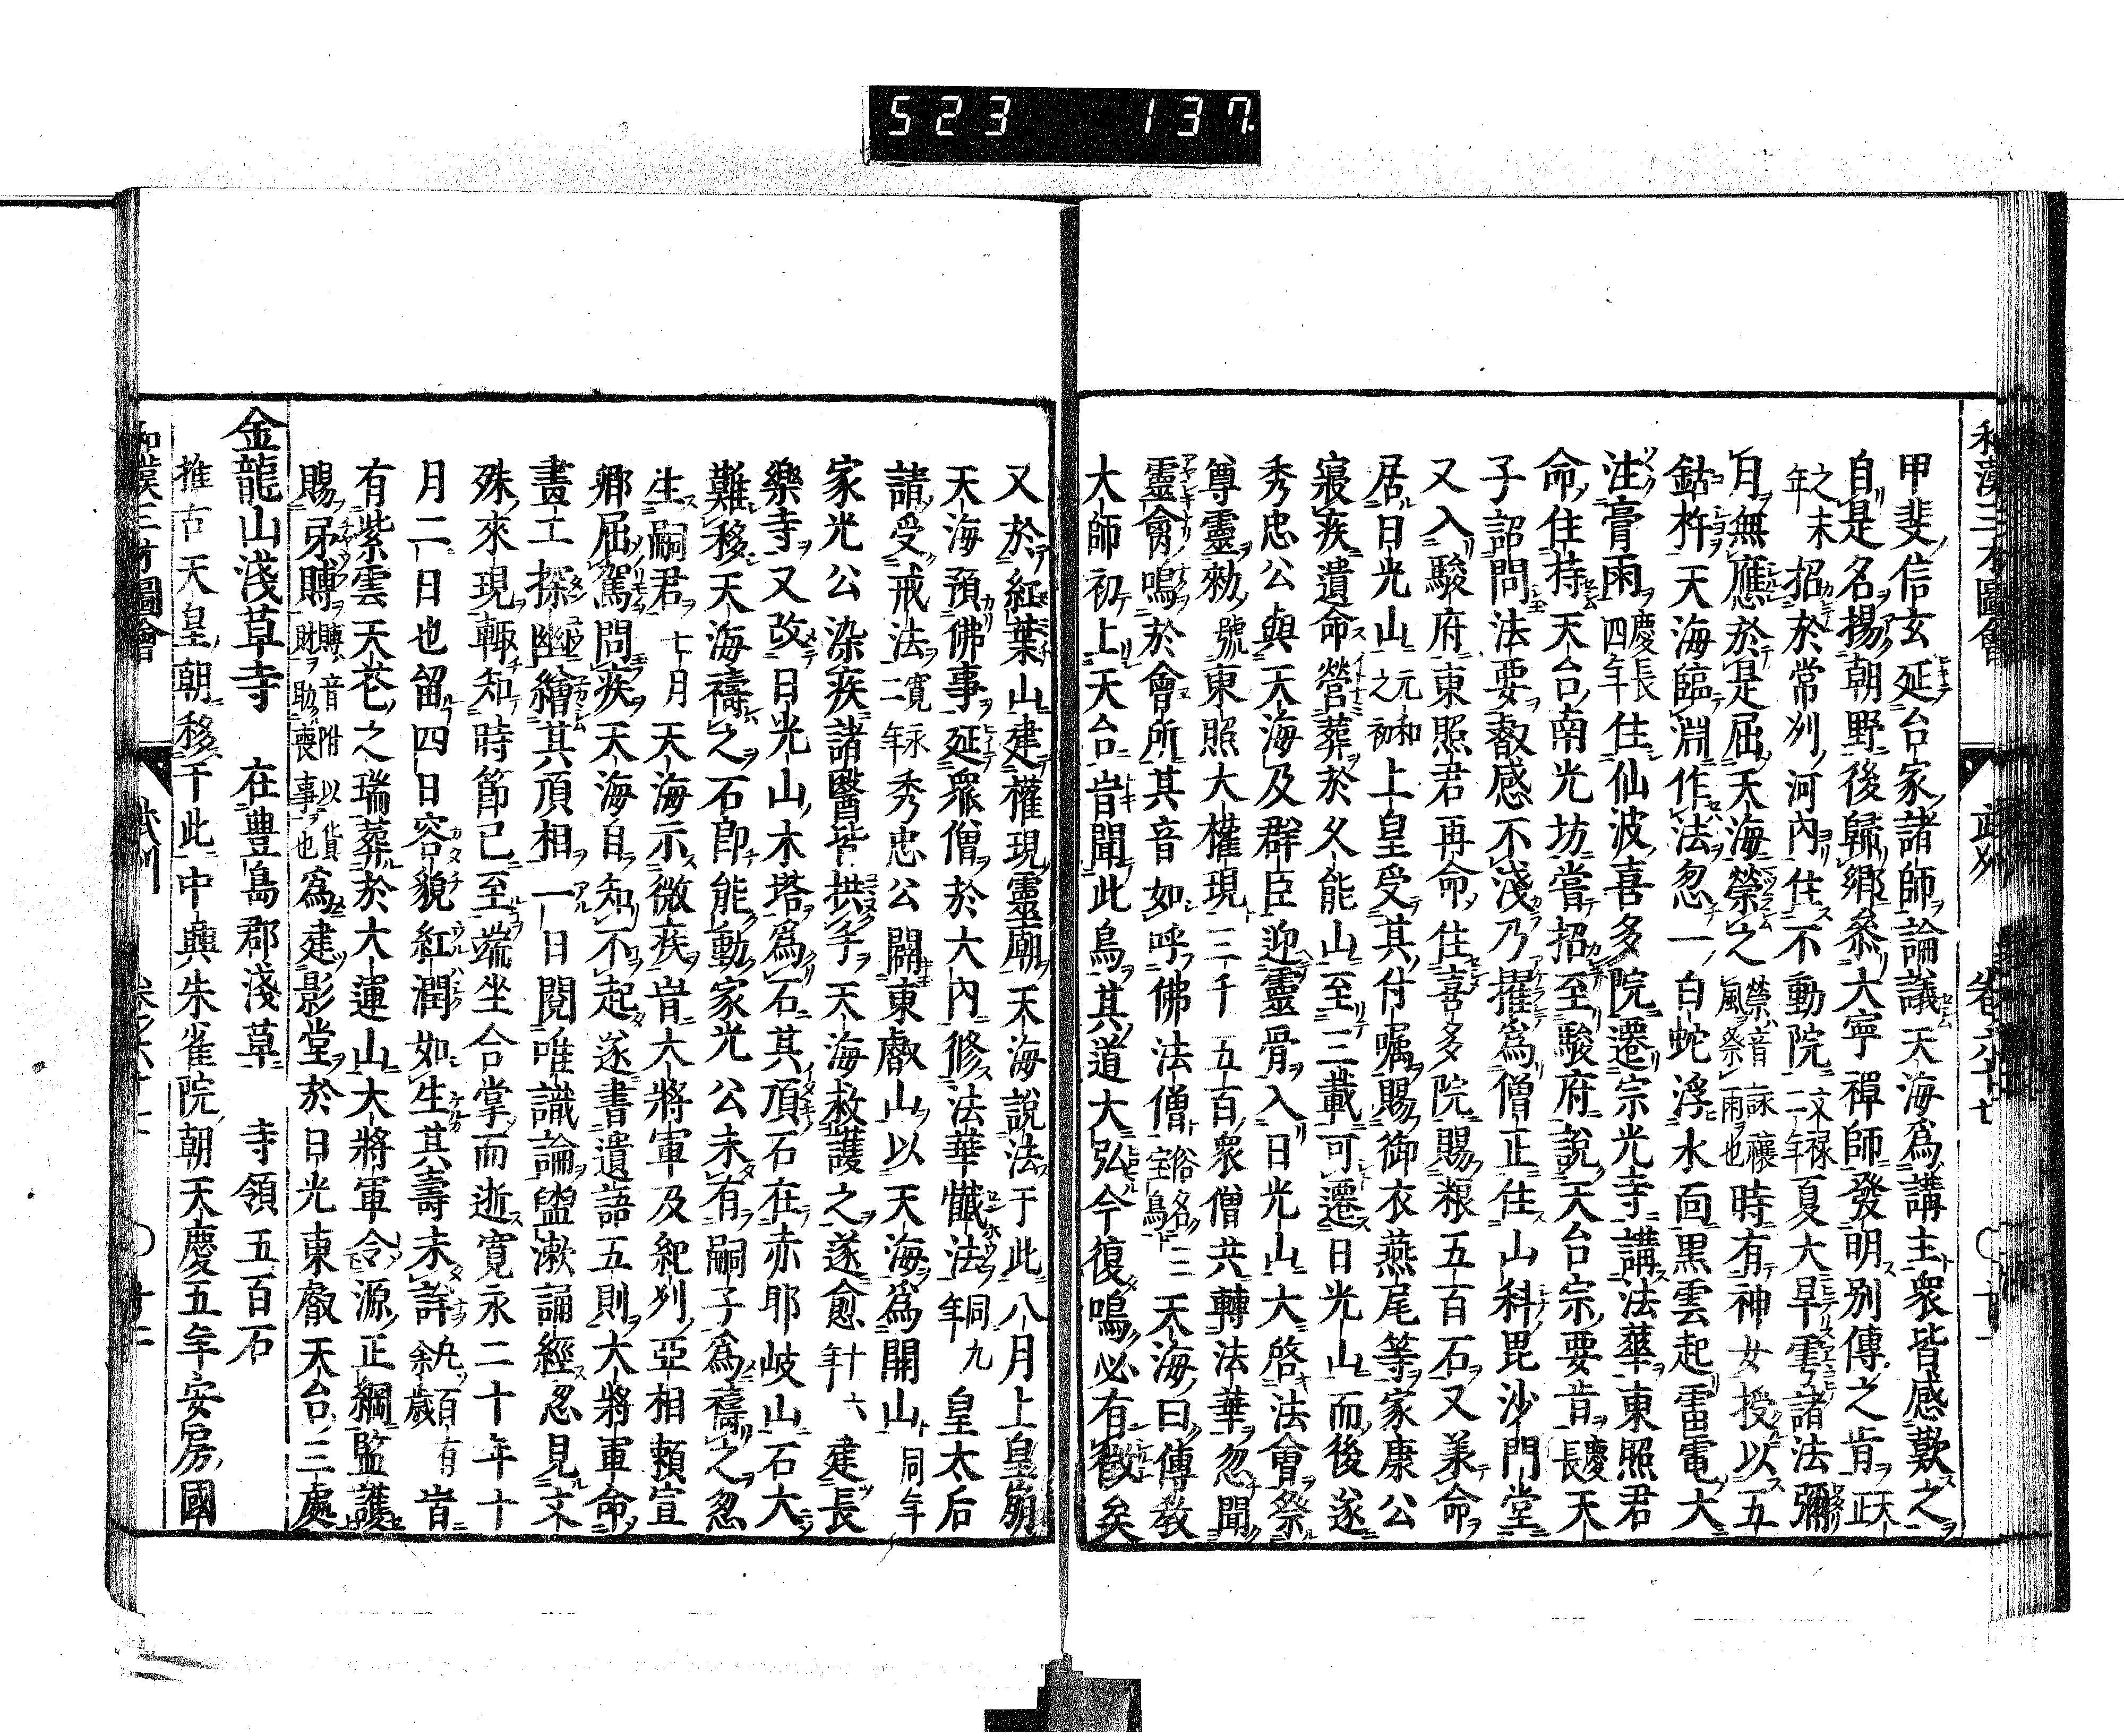 523 137
和漢三才圖會 武州 卷六十七 〇廿一
甲斐信玄延台家諸師論議天海爲講主衆皆感歎之
自是名揚朝野後歸鄉參大寧禪師發明別傳之肯天正
之末年招於常州河內住不動院文禄二年夏大旱雩諸法彌
月無應於是屈天海禜之禜音詠禳風祭雨也時有神女授以五
鈷杵天海臨淵作法忽一白蛇浮水面黑雲起雷電大
注膏雨慶長四年住仙波喜多院遷宗光寺講法華東照君
命住持天台南光坊嘗招至駿府說天台宗要肯慶長天
子詔問法要叡感不淺乃擢爲僧正住山科毘沙門堂
又入駿府東照君再命住喜多院賜粮五百石又美命
居日光山元和之初上皇受其付囑賜御衣燕尾等家康公
寢疾遺命營葬於久能山至三載可遷日光山而後遂
秀忠公與天海及群臣迎靈骨入日光山大啓法會祭
尊靈勅號東照大權現三千五百衆僧共轉法華忽聞
靈禽鳴於會所其音如呼佛法僧俗名三寶鳥天海曰傳敎
大師初上天台旹聞此鳥其道大弘今復鳴必有徴矣
又於紅葉山建權現靈廟天海說法于此八月上皇崩
天海預佛事延衆僧於大內修法華懺法同九年皇太后
請受戒法寬永二年秀忠公闢東叡山以天海爲開山同年
家光公染疾諸醫皆拱手天海救護之遂愈十六年建長
樂寺又改日光山木塔爲石其頂石在赤耶岐山石大
難移天海禱之石卽能動家光公未有嗣子爲禱之忽
生嗣君七月天海示微疾旹大將軍及紀州亞相賴宣
卿屈駕問疾天海自知不起遂書遺語五則大將軍命
畫工探幽繪其頂相一日閱唯識論盥漱誦經忽見文
殊來現輙知時節已至端坐合掌而逝寬永二十年十
月二日也留四日容貌紅潤如生其壽未詳凢百有余歲旹
有紫雲天花之瑞葬於大蓮山大將軍令源正綱監護
賜弔賻賻音附以貨財助喪事也爲建影堂於日光東叡天台三處
金龍山淺草寺 在豊島郡淺草 寺領五百石
推古天皇朝移于此中興朱雀院朝天慶五年安房國
和漢三才圖會 武州 卷六十七 〇廿二